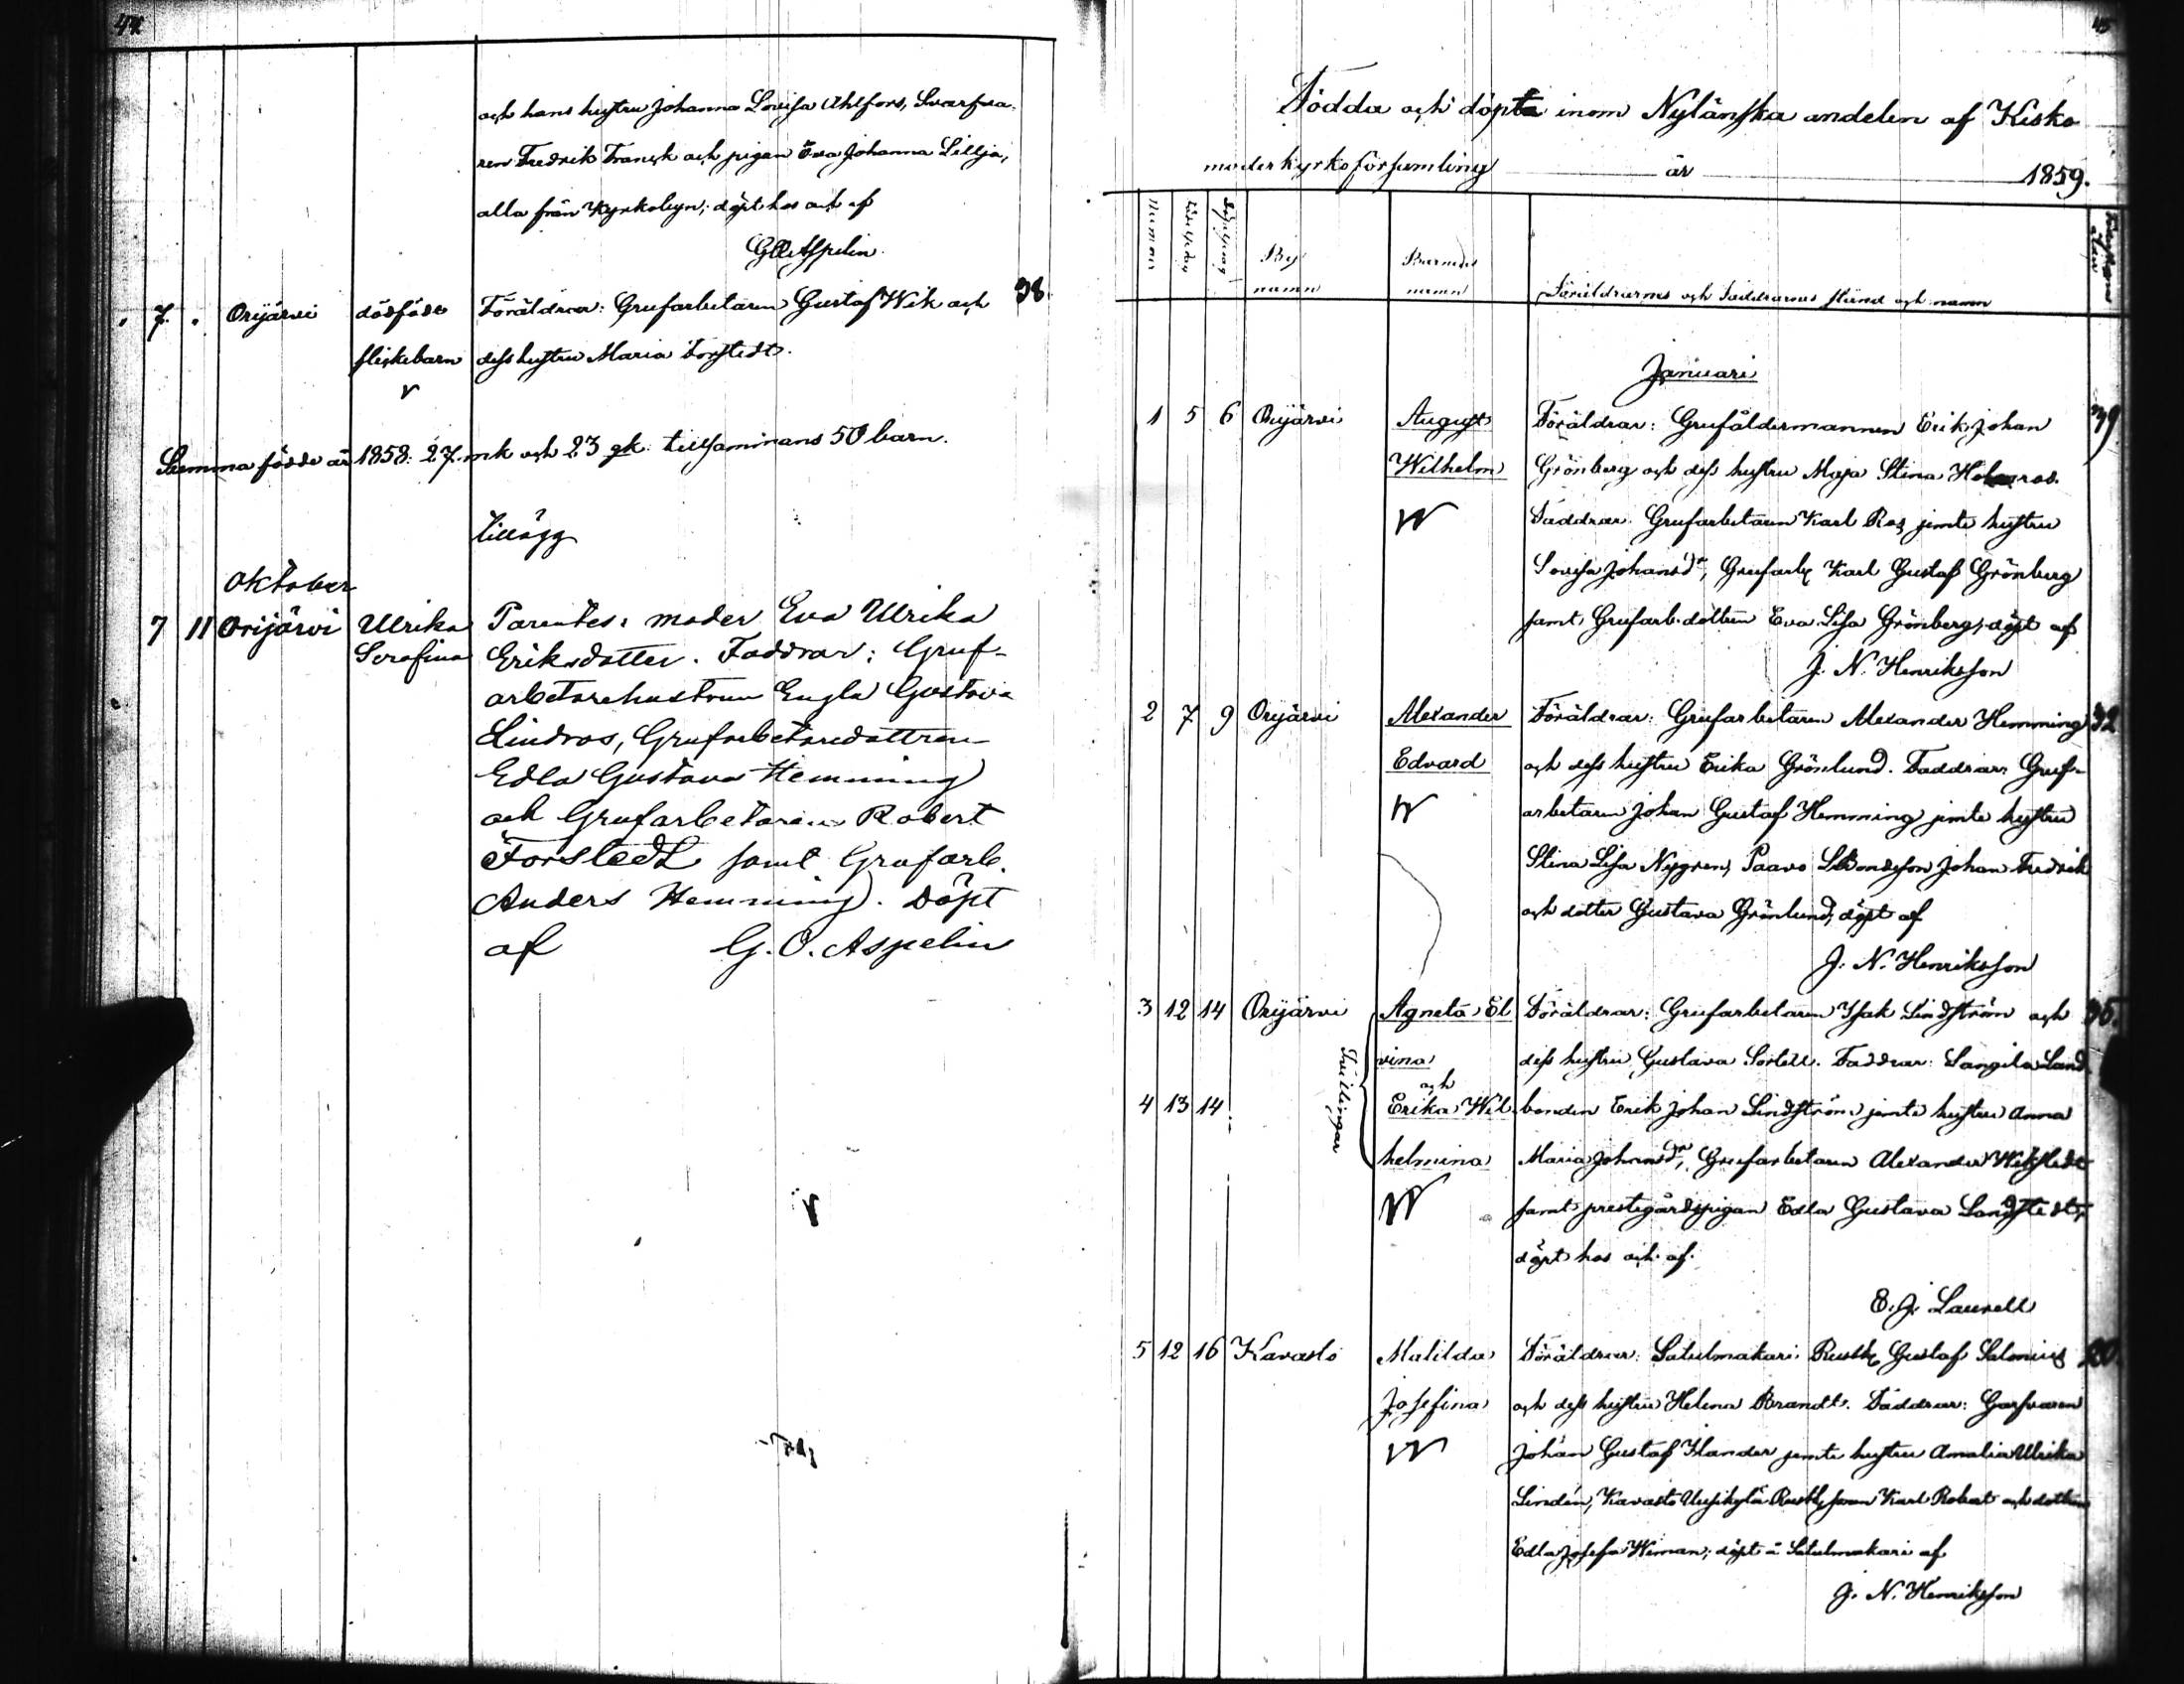 44
och hans hustru Johanna Lovisa Ahlfors, Svarfva-
ren Fredrik Franck och pigan Eva Johanna Lillja,
alla från Kyrkobyn; döpt hos och af
G O Aspelin
7. Orijärvi dödfödt Föräldrar: Grufarbetaren Gustaf Wik och 38.
flickebarn dess hustru Maria Forstedt.
Summa födde år 1858: 27 mk och 23 qk tillsammans 50 barn.
Tillägg
Oktober
7 11 Orijärvi Ulrika Parentes: moder Eva Ulrika
Serafina Eriksdotter. Faddrar: Gruf-
arbetarehustrun Engla Gustava
Lindros, Grufarbetaredottren
Edla Gustava Hemming
och Grufarbetaren Robert
Forstedt samt Grufarb.
Anders Hemming. Döpt
af G. O. Aspelin
45
Födda och döpta inom Nylänska andelen af Kisko
moderkyrkoförsamling år 1859.
Nummer Födelsedag Döpelsedag By namn Barnens namn Föräldrarnes och Faddrarnes stånd och namn
Januari
1 5 6 Orijärvi August Föräldrar: Grufåldermannen Erik Johan 39
Wilhelm Grönberg och dess hustru Maja Stina Holmros.
Faddrar: Grufarbetaren Karl Ros jemte hustru
Lovisa Johansdr, Grufarb. Karl Gustaf Grönberg
samt Grufarb. dottren Eva Lisa Grönberg; döpt af
J. N. Henriksson
2 7 9 Orijärvi Alexander Föräldrar: Grufarbetaren Alexander Hemming 32
Edvard och dess hustru Erika Grönlund. Faddrar: Gruf-
arbetaren Johan Gustaf Hemming jemte hustru
Stina Lisa Nygren, Paavo Bondeson Johan Fredrik
och dotter Gustava Grönlund; döpt af
J. N. Henriksson
3 12 14 Orijärvi Agneta El Föräldrar: Grufarbetaren Isak Lindström och 36.
vina dess hustru Gustava Sortell. Faddrar: Langila Land
och
4 13 14 Tvillingar Erika Wil bonden Erik Johan Lindström jemte hustru Anna
helmina Maria Johansdr, Grufarbetaren Alexander Wikstedt
samt prestegårdspigan Edla Gustava Landstedt;
döpt hos och af
E. J. Laurell
5 12 16 Kavasto Matilda Föräldrar: Satulmakari Rusth. Gustaf Salonius 20.
Josefina och dess hustru Helena Brandt. Faddrar: Garfvaren
Johan Gustaf Ilander jemte hustru Amalia Ulrika
Lindén, Kavasto Uusikylä Rusth. sonen Karl Robert och dottren
Edla Josefa Wiman; döpt å Satulmakari af
J. N. Henriksson